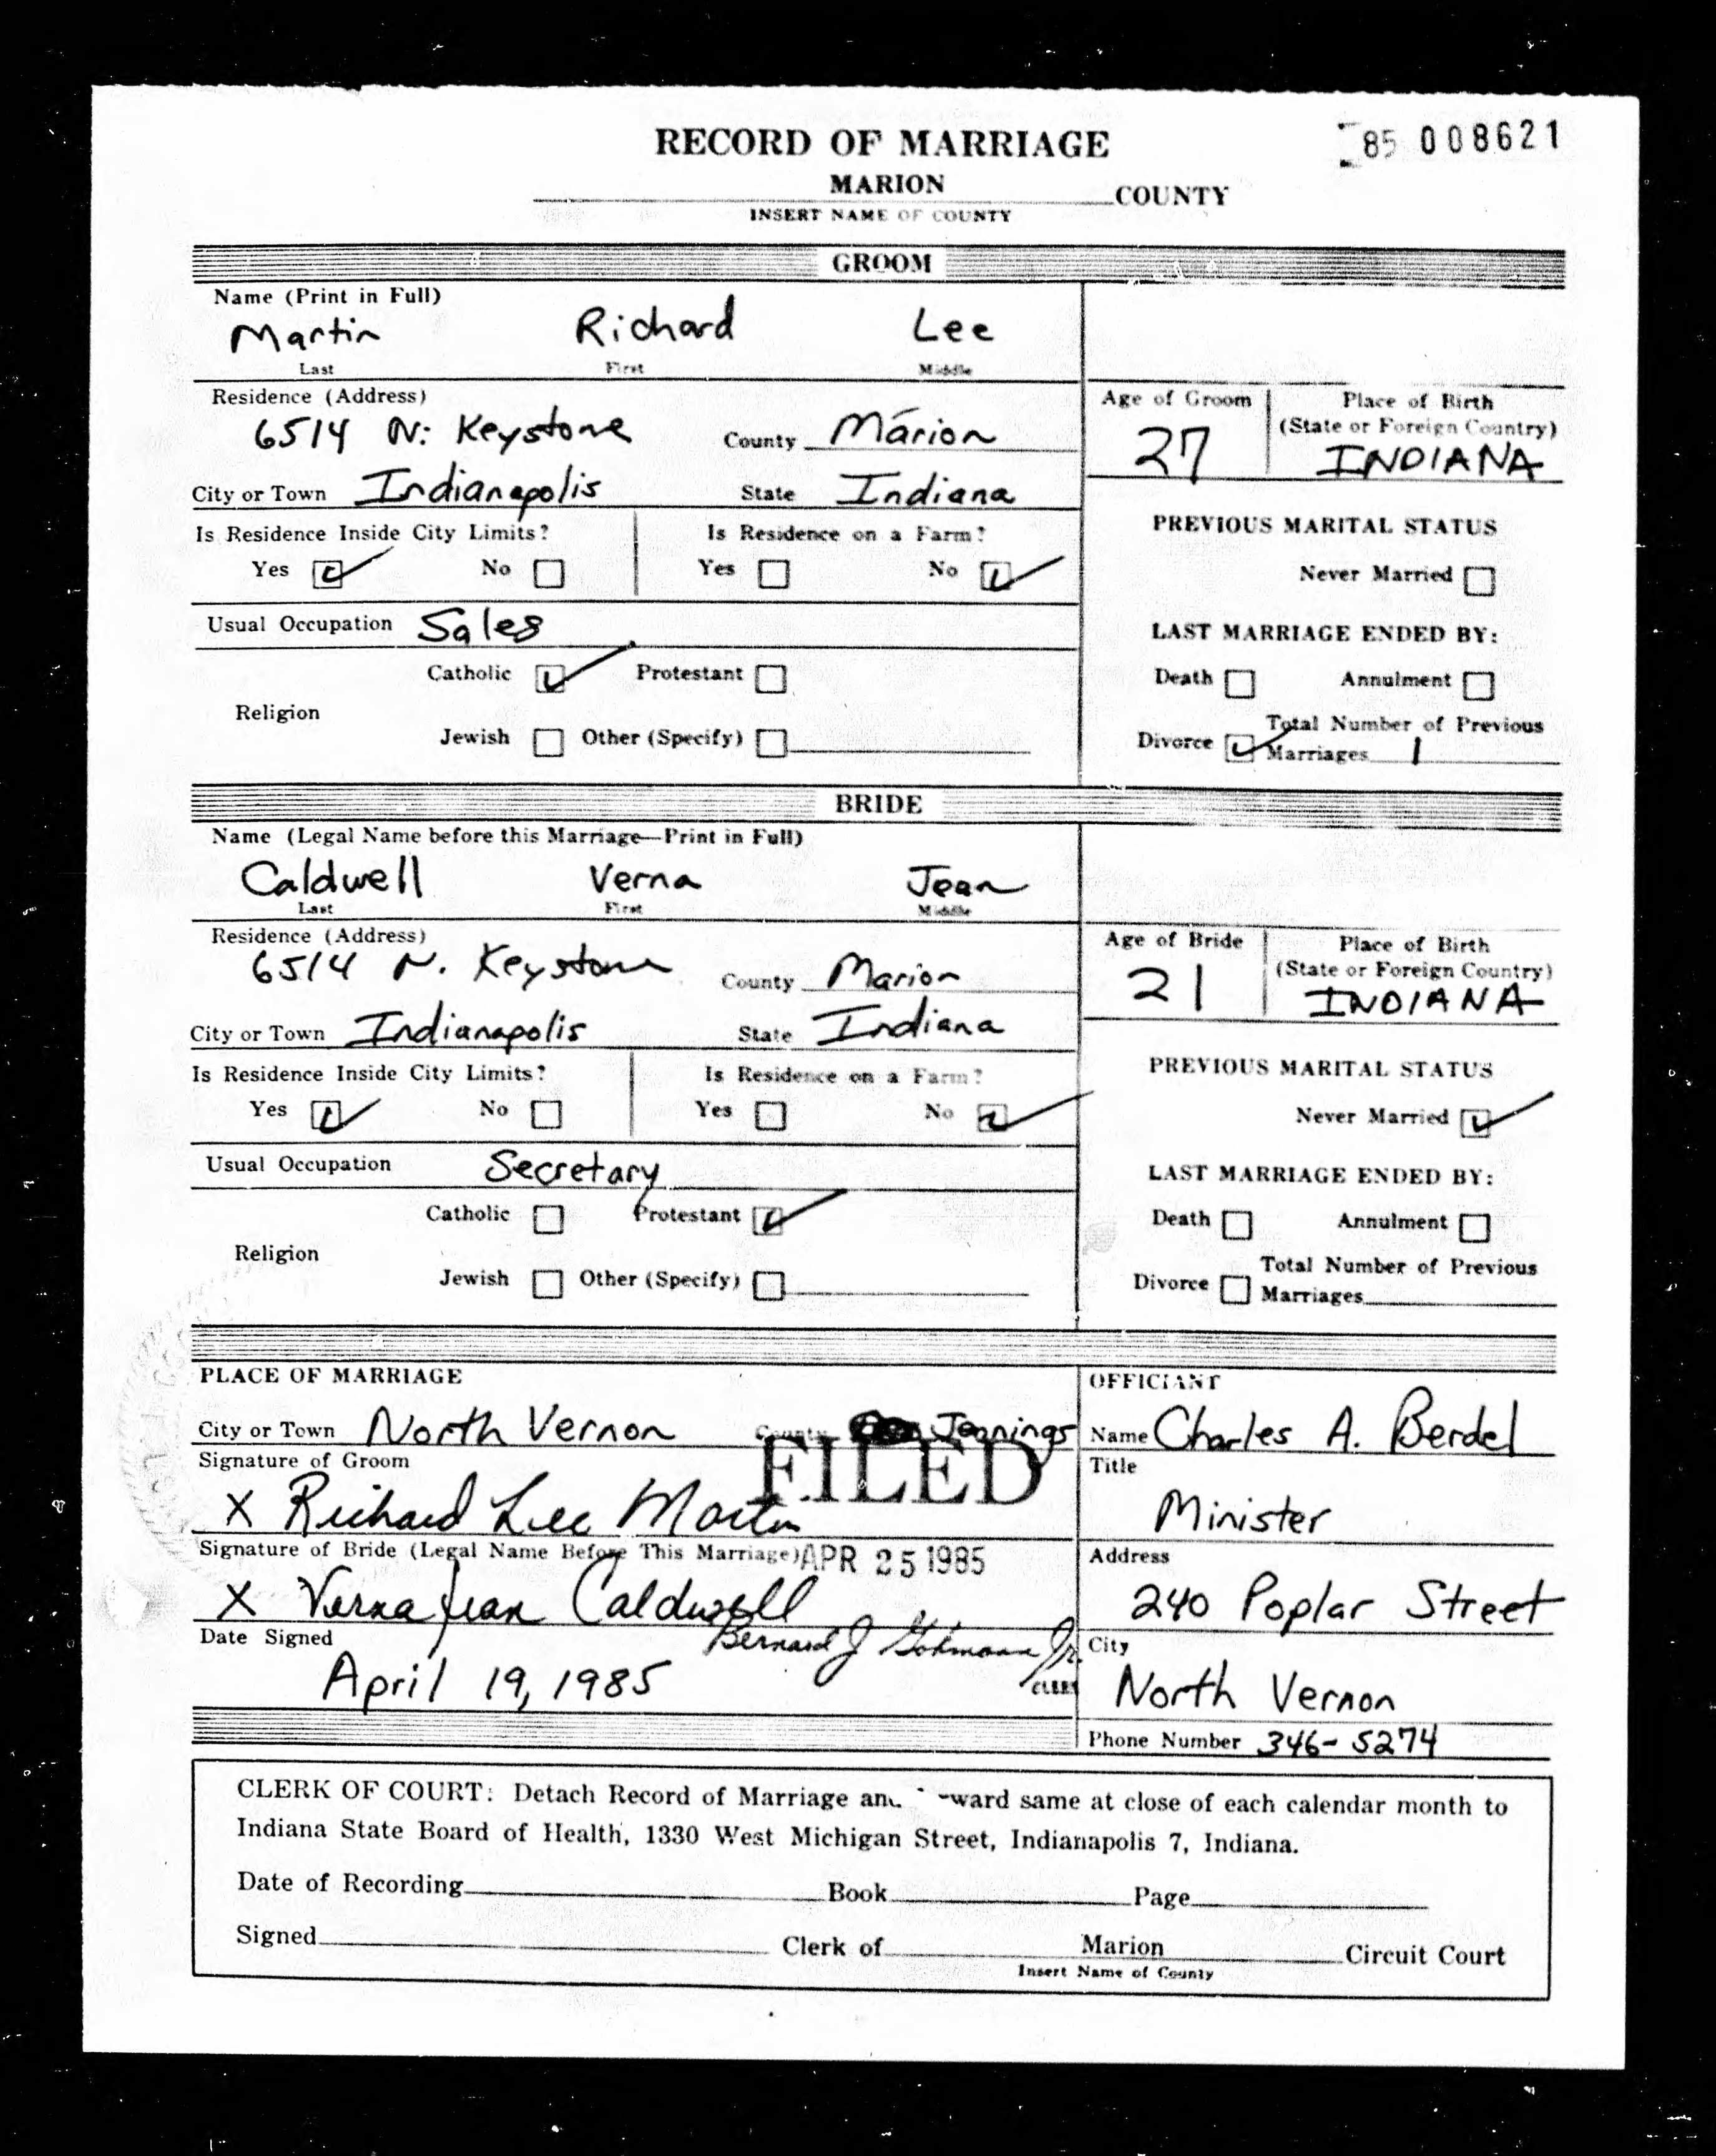 RECORD OF MARRIAGE
85 008621
MARION COUNTY
INSERT NAME OF COUNTY
GROOM
Name (Print in Full)
Martin Richard Lee
Last First Middle
Residence (Address)
6514 N. Keystone County Marion
Age of Groom Place of Birth
(State or Foreign Country)
27 INDIANA
City or Town Indianapolis State Indiana
Is Residence Inside City Limits? Is Residence on a Farm?
Yes No Yes No
PREVIOUS MARITAL STATUS
Never Married
Usual Occupation Sales
LAST MARRIAGE ENDED BY:
Catholic Protestant
Death Annulment
Religion
Jewish Other (Specify)
Total Number of Previous
Divorce Marriages 1
BRIDE
Name (Legal Name before this Marriage—Print in Full)
Caldwell Verna Jean
Last First Middle
Residence (Address)
6514 N. Keystone County Marion
Age of Bride Place of Birth
(State or Foreign Country)
21 INDIANA
City or Town Indianapolis State Indiana
Is Residence Inside City Limits? Is Residence on a Farm?
Yes No Yes No
PREVIOUS MARITAL STATUS
Never Married
Usual Occupation Secretary
LAST MARRIAGE ENDED BY:
Catholic Protestant
Death Annulment
Religion
Jewish Other (Specify)
Total Number of Previous
Divorce Marriages
PLACE OF MARRIAGE
City or Town North Vernon County Jennings
FILED
Signature of Groom
X Richard Lee Martin
Signature of Bride (Legal Name Before This Marriage)
APR 25 1985
X Verna Jean Caldwell
Bernard J Gohmann Jr.
CLERK
Date Signed
April 19, 1985
OFFICIANT
Name Charles A. Berdel
Title
Minister
Address
240 Poplar Street
City
North Vernon
Phone Number 346-5274
CLERK OF COURT: Detach Record of Marriage an ward same at close of each calendar month to
Indiana State Board of Health, 1330 West Michigan Street, Indianapolis 7, Indiana.
Date of Recording Book Page
Signed Clerk of Marion Circuit Court
Insert Name of County